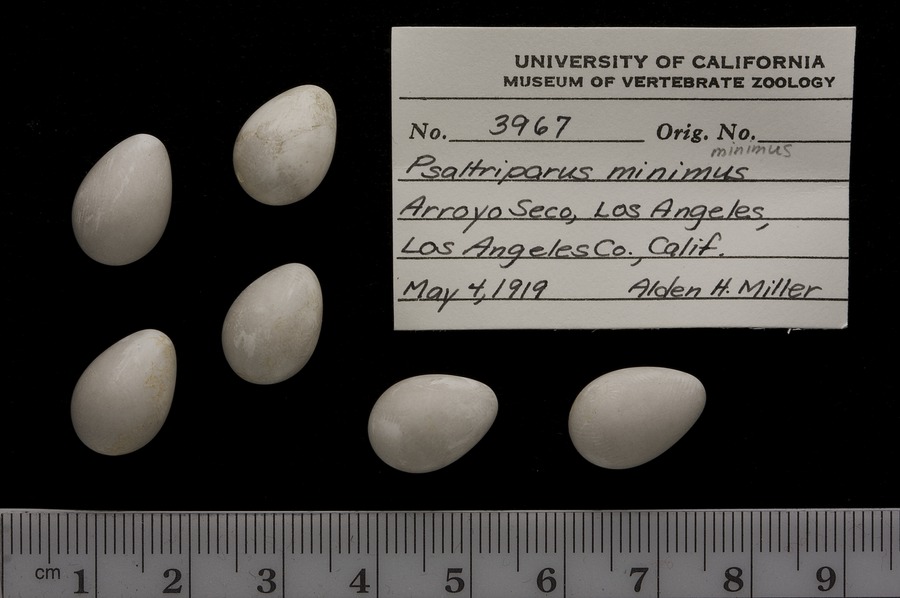 UNIVERSITY OF CALIFORNIA
MUSEUM OF VERTEBRATE ZOOLOGY
No. 3967 Orig. No.
minimus
Psaltriparus minimus
Arroyo Seco, Los Angeles,
Los Angeles Co., Calif.
May 4, 1919 Alden H. Miller
cm 1 2 3 4 5 6 7 8 9